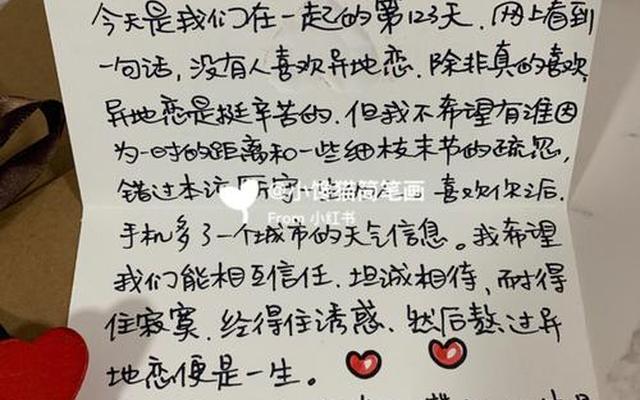 今天是我们在一起的第123天,网上看到
一句话,没有人喜欢异地恋.除非真的喜欢,
异地恋是挺辛苦的.但我不希望有谁因
为一时的距离和一些细枝末节的疏忽,
错过本该厮守一生的人。喜欢你之后.
@小馋猫简笔画
From 小红书
手机多了一个城市的天气信息。我希望
我们能相互信任.坦诚相待、耐得
住寂寞.经得住诱惑.然后熬过异
地恋便是一生。